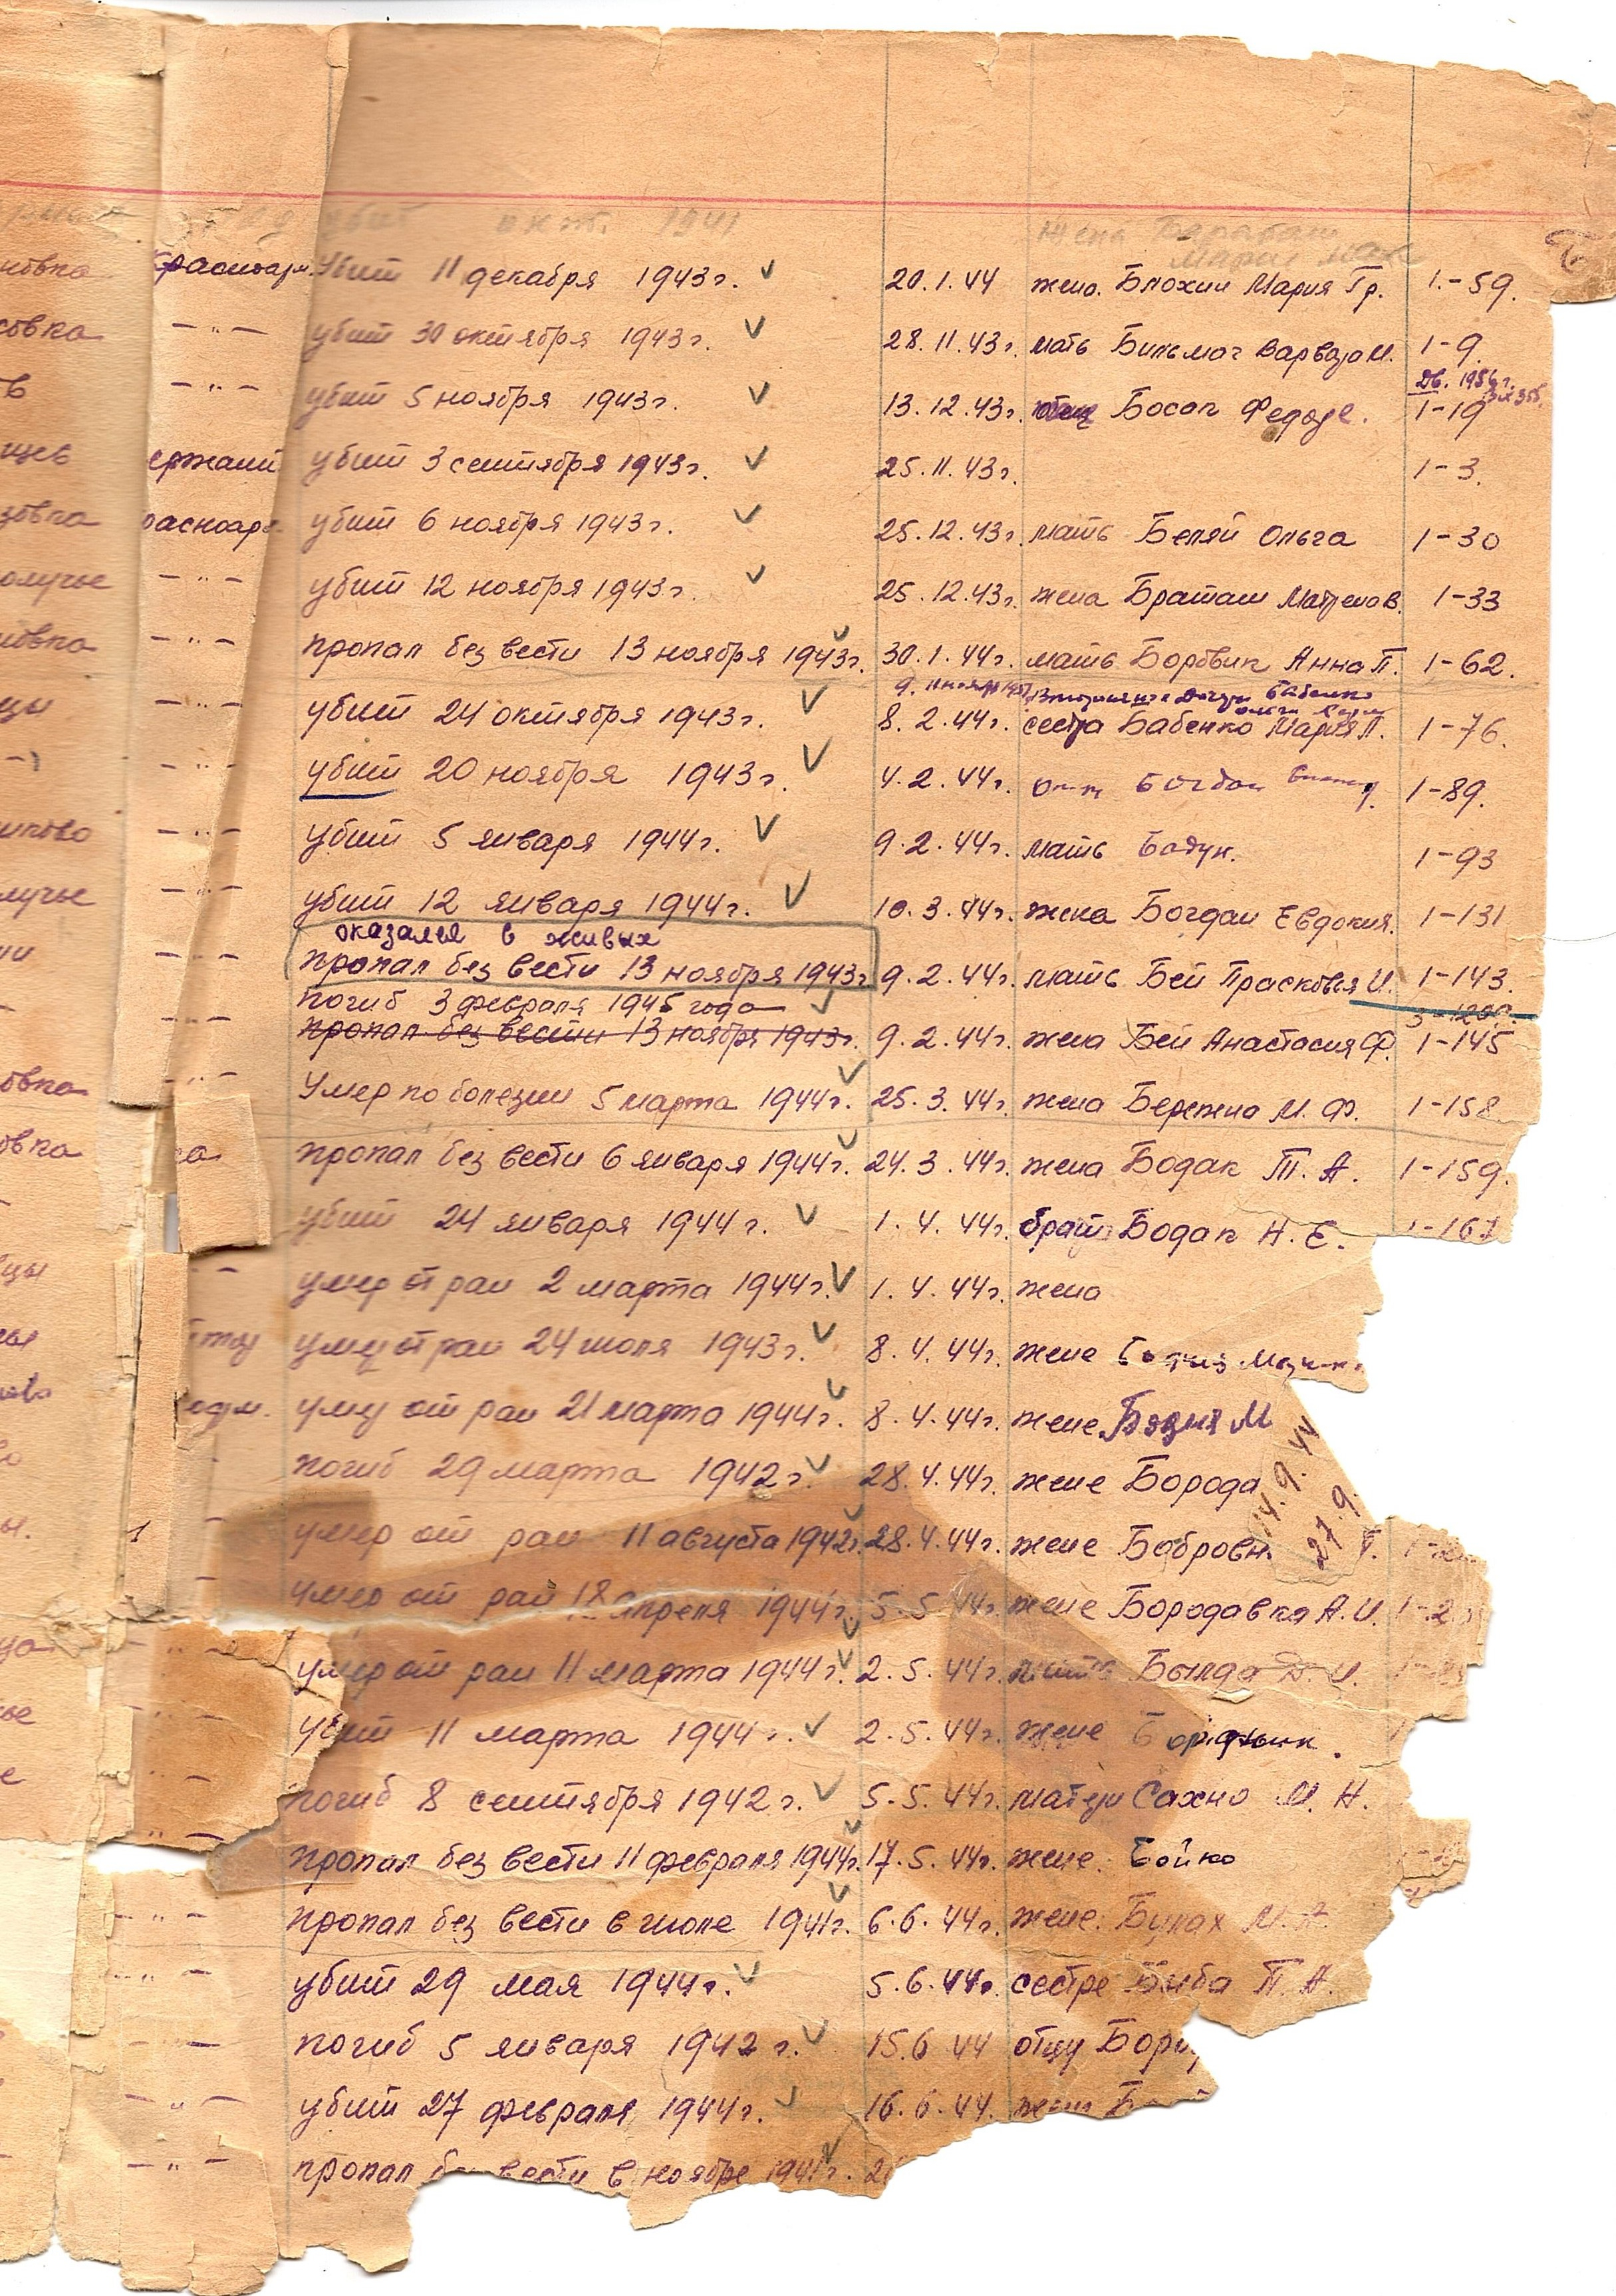 убит окт. 1941 жена
Мария
Б
новка Красноарм. Убит 11 декабря 1943г. 20.1.44 жена Блохин Мария Гр. 1-59.
совка — " — убит 30 октября 1943г. 28.11.43г. мать М. 1-9.
Дв. 1956г.
в — " — убит 5 ноября 1943г. 13.12.43г. Босап 1-19
щев ержант убит 3 сентября 1943г. 25.11.43г. 1-3.
зовка расноар убит 6 ноября 1943г. 25.12.43г. мать Беляй Ольга 1-30
олучье — " — убит 12 ноября 1943г. 25.12.43г. жена Браташ 1-33
новка — " — пропал без вести 13 ноября 1943г. 30.1.44г. мать Боровик Анна П. 1-62.
9. Бабенко
цы — " — убит 24 октября 1943г. 8.2.44г. сестра Бабенко Мария П. 1-76.
— " — убит 20 ноября 1943г. 4.2.44г. Богдан 1-89.
иково — " — убит 5 января 1944г. 9.2.44г. мать Бодун. 1-93
лучье — " — убит 12 января 1944г. 10.3.44г. жена Богдан Евдокия. 1-131
оказался в живых
ии — " — пропал без вести 13 ноября 1943г. 9.2.44г. мать Бей Прасковья И. 1-143.
погиб 3 февраля 1945 года
— " — пропал без вести 13 ноября 1943г. 9.2.44г. жена Бей Анастасия Ф. 1-145
овка — " — Умер по болезни 5 марта 1944г. 25.3.44г. жена Бережна М. Ф. 1-158
овка ка пропал без вести 6 января 1944г. 24.3.44г. жена Бодак Т. А. 1-159.
убит 24 января 1944г. 1.4.44г. брат Бодак Н. Е. 1-167
цы — умер от ран 2 марта 1944г. 1.4.44г. жена
умер от ран 24 июля 1943г. 8.4.44г. жене
одм. умер от ран 21 марта 1944г. 8.4.44г. жене Бязня М
погиб 29 марта 1942г. 28.4.44г. жене Борода
14.9.44
27.9.
ы. 1 — умер от ран 11 августа 1942г. 28.4.44г. жене Бобровн
— умер от ран 18 апреля 1944г. 5.5.44г. жене Бородавка А. И. 1-2
" — умер от ран 11 марта 1944г. 2.5.44г. мать Былда Д. И.
— " — убит 11 марта 1944г. 2.5.44г. жене
— " — погиб 8 сентября 1942г. 5.5.44г. матери Сахно М. Н.
" — пропал без вести 11 февраля 1944г. 17.5.44г. жене Бойко
— " — пропал без вести в июле 1941г. 6.6.44г. жене Булах М. А.
— " — убит 29 мая 1944г. 5.6.44г. сестре Быба П. А.
— " — погиб 5 января 1942г. 15.6.44 отцу
— " — убит 27 февраля 1944г. 16.6.44.
— " — пропал без вести в ноябре 1941г. 2